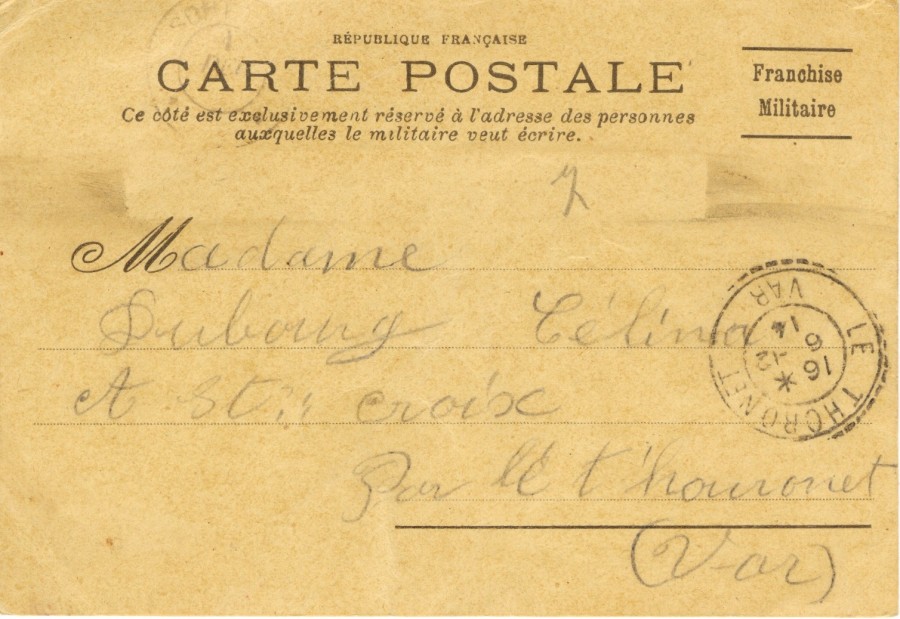 RÉPUBLIQUE FRANÇAISE
CARTE POSTALE
Ce côté est exclusivement réservé à l'adresse des personnes
auxquelles le militaire veut écrire.
Franchise
Militaire
7
Madame
Dubourg Célina
A St: croix
Par le t'houronet
(Var)
LE THORONET
VAR
14
16